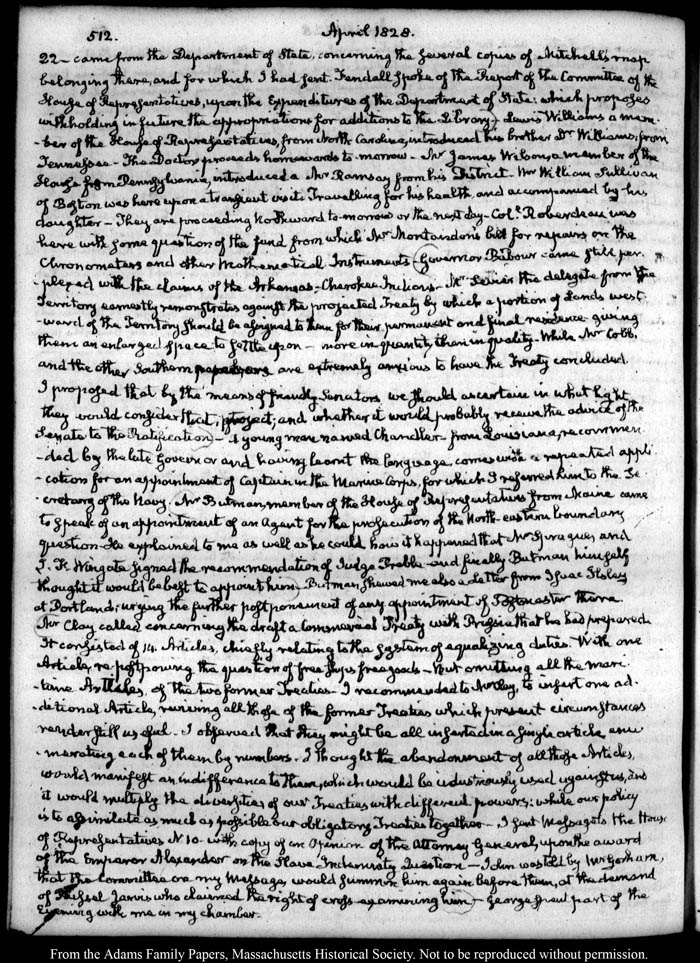 512. April 1828.
22— came from the Department of State, concerning the several copies of Mitchell's map
belonging there, and for which I had sent. Kendall spoke of the Report of the Committee of the
House of Representatives, upon the Expenditures of the Department of State: which proposes
withholding in future the appropriations for additions to the Library. Lewis Williams a mem-
-ber of the House of Representatives, from North Carolina, introduced his brother Dr. Williams, from
Tennessee— The Doctor proceeds homewards to-morrow— Mr James Wilson, a member of the
House from Pennsylvania, introduced a Mr Ramsay from his District. Mr William Sullivan
of Boston was here upon a transient visit: Travelling for his health, and accompanied by his
daughter— They are proceeding Northward to-morrow or the next day— Col. Roberdeau was
here with some question of the fund from which Mr Montandon's bill for repairs on the
Chronometers and other Mathematical Instruments— Governor Barbour came still per-
-plexed with the claims of the Arkansas-Cherokee Indians. Mr Sevier the delegate from the
Territory earnestly remonstrates against the projected Treaty by which a portion of Lands west-
-ward of the Territory should be assigned to them for their permanent and final residence giving
them an enlarged space to settle upon— more in quantity, than in quality. While Mr Cobb,
and the other Southern are extremely anxious to have the Treaty concluded.
I proposed that by the means of friendly Senators we should ascertain in what light
they would consider that project; and whether it would probably receive the advice of the
Senate to the Ratification— A young man named Chandler— from Louisiana, recommen-
-ded by the late Governor and having learnt the language, comes with a repeated appli-
-cation for an appointment of Captain in the Marine Corps, for which I referred him to the Se-
-cretary of the Navy. Mr Butman, member of the House of Representatives from Maine came
to speak of an appointment of an Agent for the prosecution of the North-eastern boundary
question— He explained to me as well as he could how it happened that Mr Sprague, and
J. F. Wingate signed the recommendation of Judge Preble— and finally Butman himself
thought it would be best to appoint him— Butman shewed me also a Letter from Isaac Ilsley
at Portland; urging the further postponement of any appointment of Postmaster there.
Mr Clay called concerning the draft a Commercial Treaty with Prussia that he had prepared.
It consisted of 14. Articles, chiefly relating to the system of equalizing duties. With one
Article, re-postponing the question of free ships free goods— But omitting all the mari-
-time Articles, of the two former Treaties— I recommended to Mr Clay, to insert one ad-
-ditional Article, reviving all those of the former Treaties which present circumstances
render still useful— I observed that they might be all inserted in a single article enu-
-merating each of them by numbers. I thought the abandonment of all those Articles,
would manifest an indifference to them, which would be industriously used against us, and
it would multiply the diversities of our Treaties with different powers: while our policy
is to assimilate as much as possible our obligatory Treaties together— I sent Messages to the House
of Representatives N 10— with copy of an Opinion of the Attorney General, upon the award
of the Emperor Alexander on the Slave Indemnity Question— John was told by Mr Gorham,
that the Committee on my Message, would summon him again before them, at the demand
of Russel Jarvis who claimed the right of cross-examining him— George spent part of the
Evening with me in my chamber.
From the Adams Family Papers, Massachusetts Historical Society. Not to be reproduced without permission.